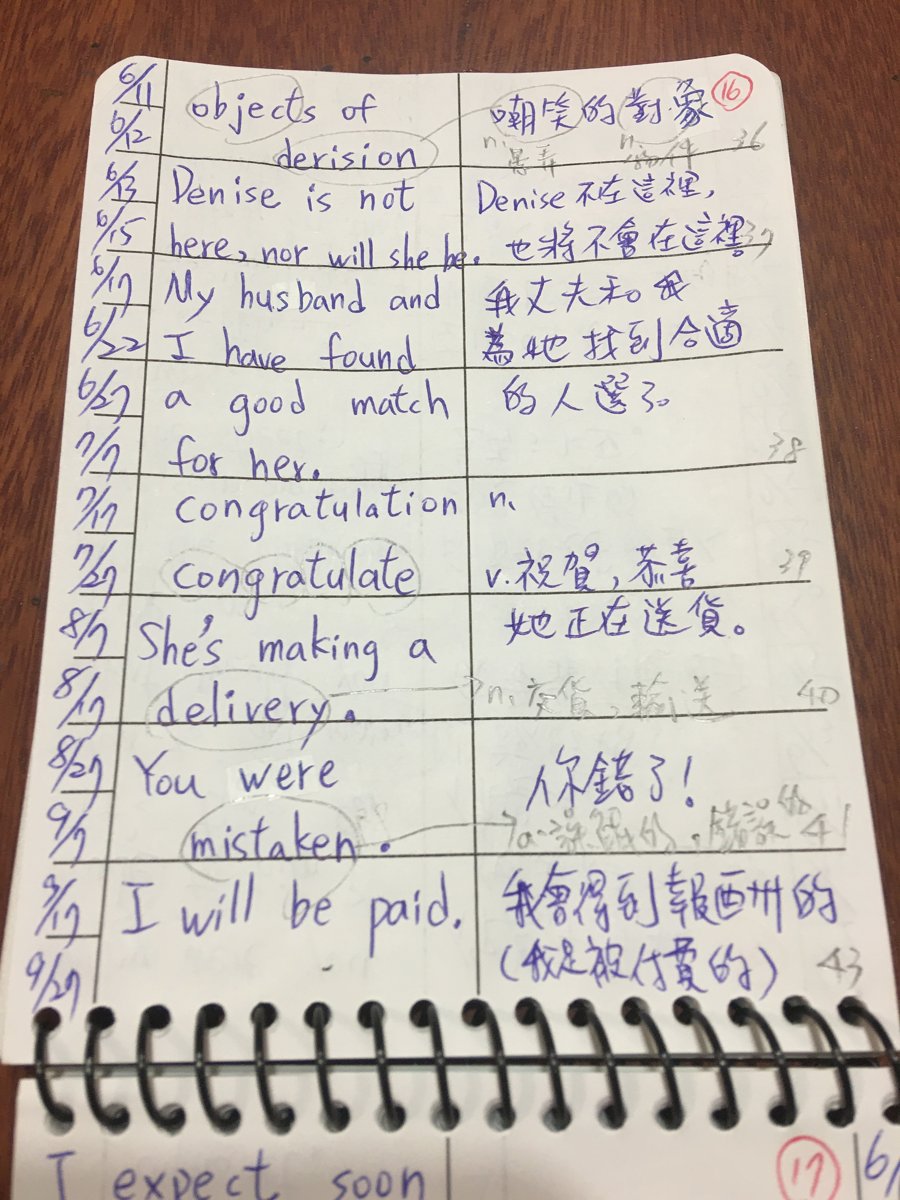 6/11 objects of 嘲笑的對象 16
6/12 derision n.愚弄 n.物件 36
6/13 Denise is not Denise 不在這裡,
6/15 here, nor will she be. 也將不會在這裡。37
6/17 My husband and 我丈夫和我
6/22 I have found 為她找到合適
6/27 a good match 的人選了。
7/7 for her. 38
7/17 congratulation n.
7/27 congratulate v.祝賀,恭喜 39
8/7 She's making a 她正在送貨。
8/17 delivery. n.交貨,輸送 40
8/27 You were 你錯了!
9/7 mistaken. a.誤解的,錯誤的 41
9/17 I will be paid. 我會得到報酬的
9/27 (我是被付費的) 43
I expect soon 17 6/